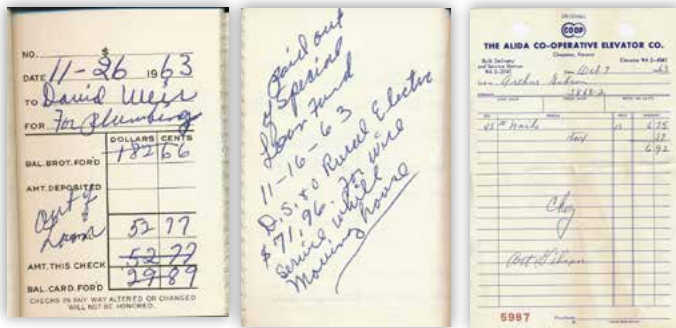 NO. $
DATE 11-26 1963
TO David Weir
FOR For Plumbing
DOLLARS CENTS
BAL. BROT. FOR'D 182 66
AMT. DEPOSITED
Out of
Loan
52 77
AMT. THIS CHECK 52 77
BAL. CARD. FOR'D 29 89
CHECKS IN ANY WAY ALTERED OR CHANGED
WILL NOT BE HONORED.
Paid out
of Special
Loan Fund
11-16-63
D.S.&O Rural Electric
$71.96. For Wire
Service while
Moving house
ORIGINAL
CO-OP
THE ALIDA CO-OPERATIVE ELEVATOR CO.
Chapman, Kansas
Bulk Delivery
and Service Station
WA 2-
Elevator WA 2-
Oct 7 63
Arthur
45 # Nails 15 6.75
tax 17
6.92
Art Gibson
5987